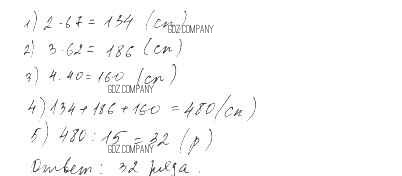 1) 2 · 67 = 134 (сл)
GDZ.COMPANY
2) 3 · 62 = 186 (сл)
3) 4 · 40 = 160 (сл)
GDZ.COMPANY
4) 134 + 186 + 160 = 480 (сл)
5) 480 : 15 = 32 (р)
GDZ.COMPANY
Ответ: 32 ряда.